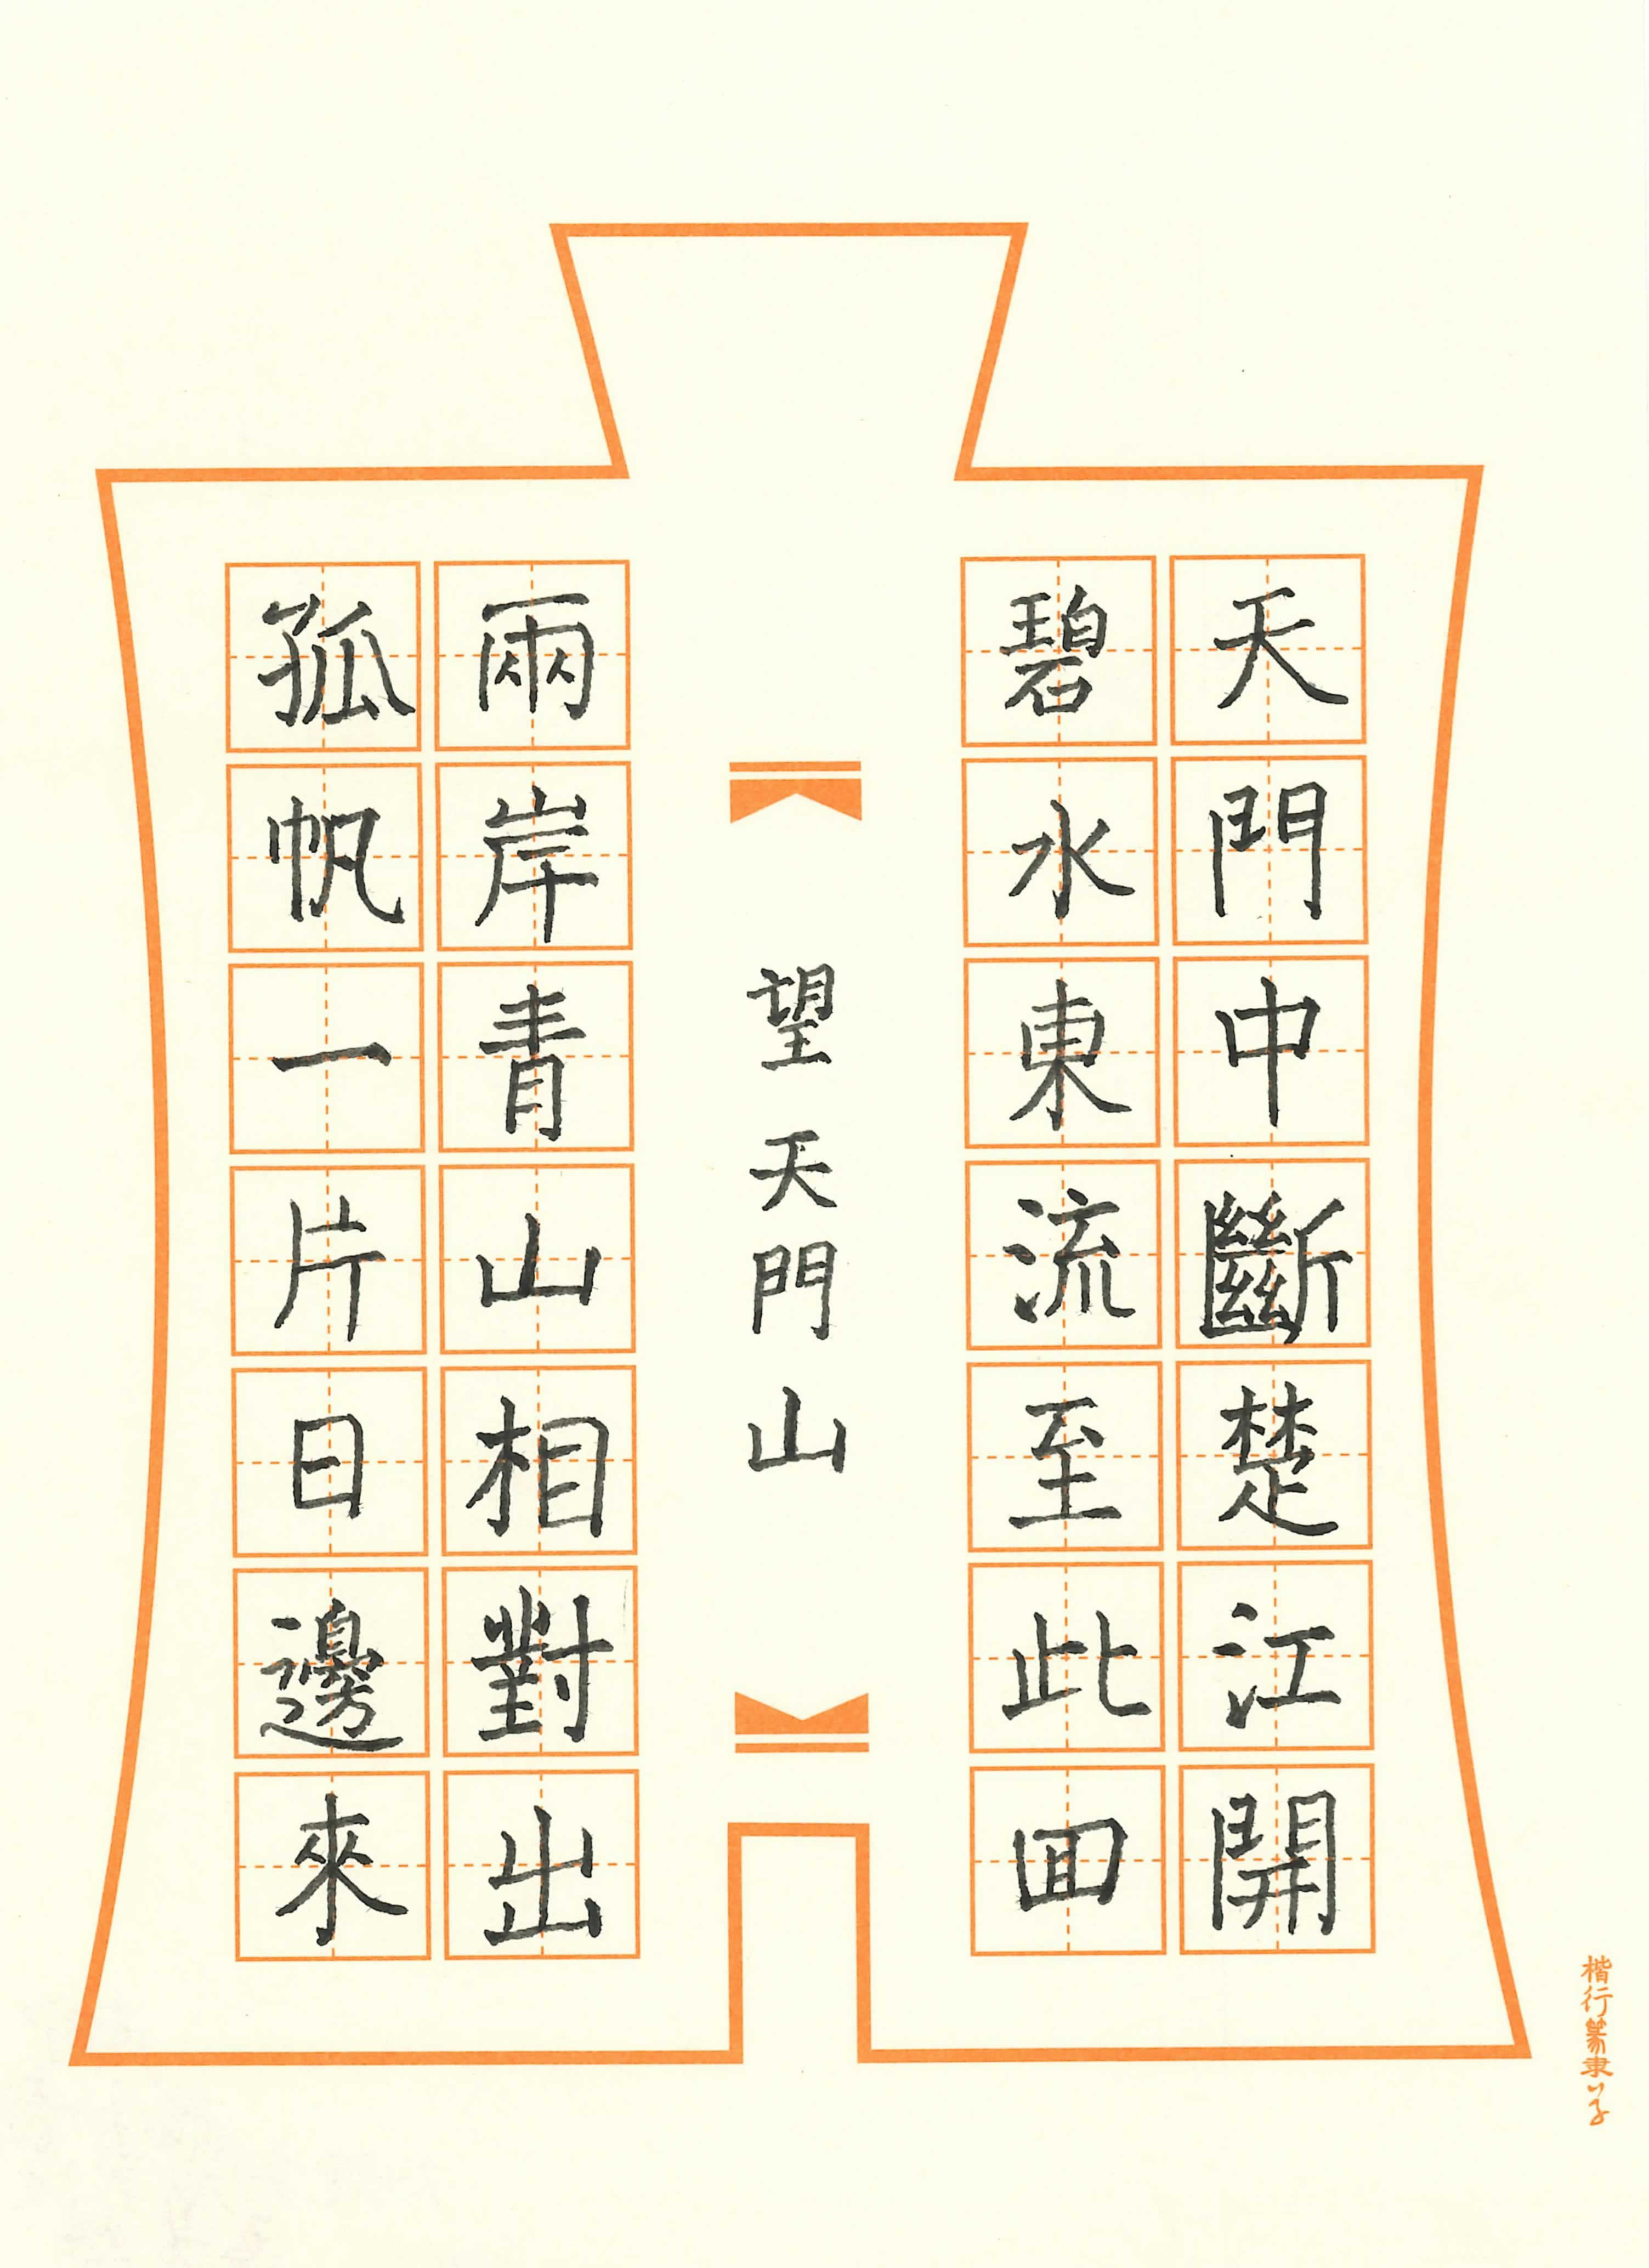 天門中斷楚江開
碧水東流至此回
望天門山
兩岸青山相對出
孤帆一片日邊來
楷行篆隶